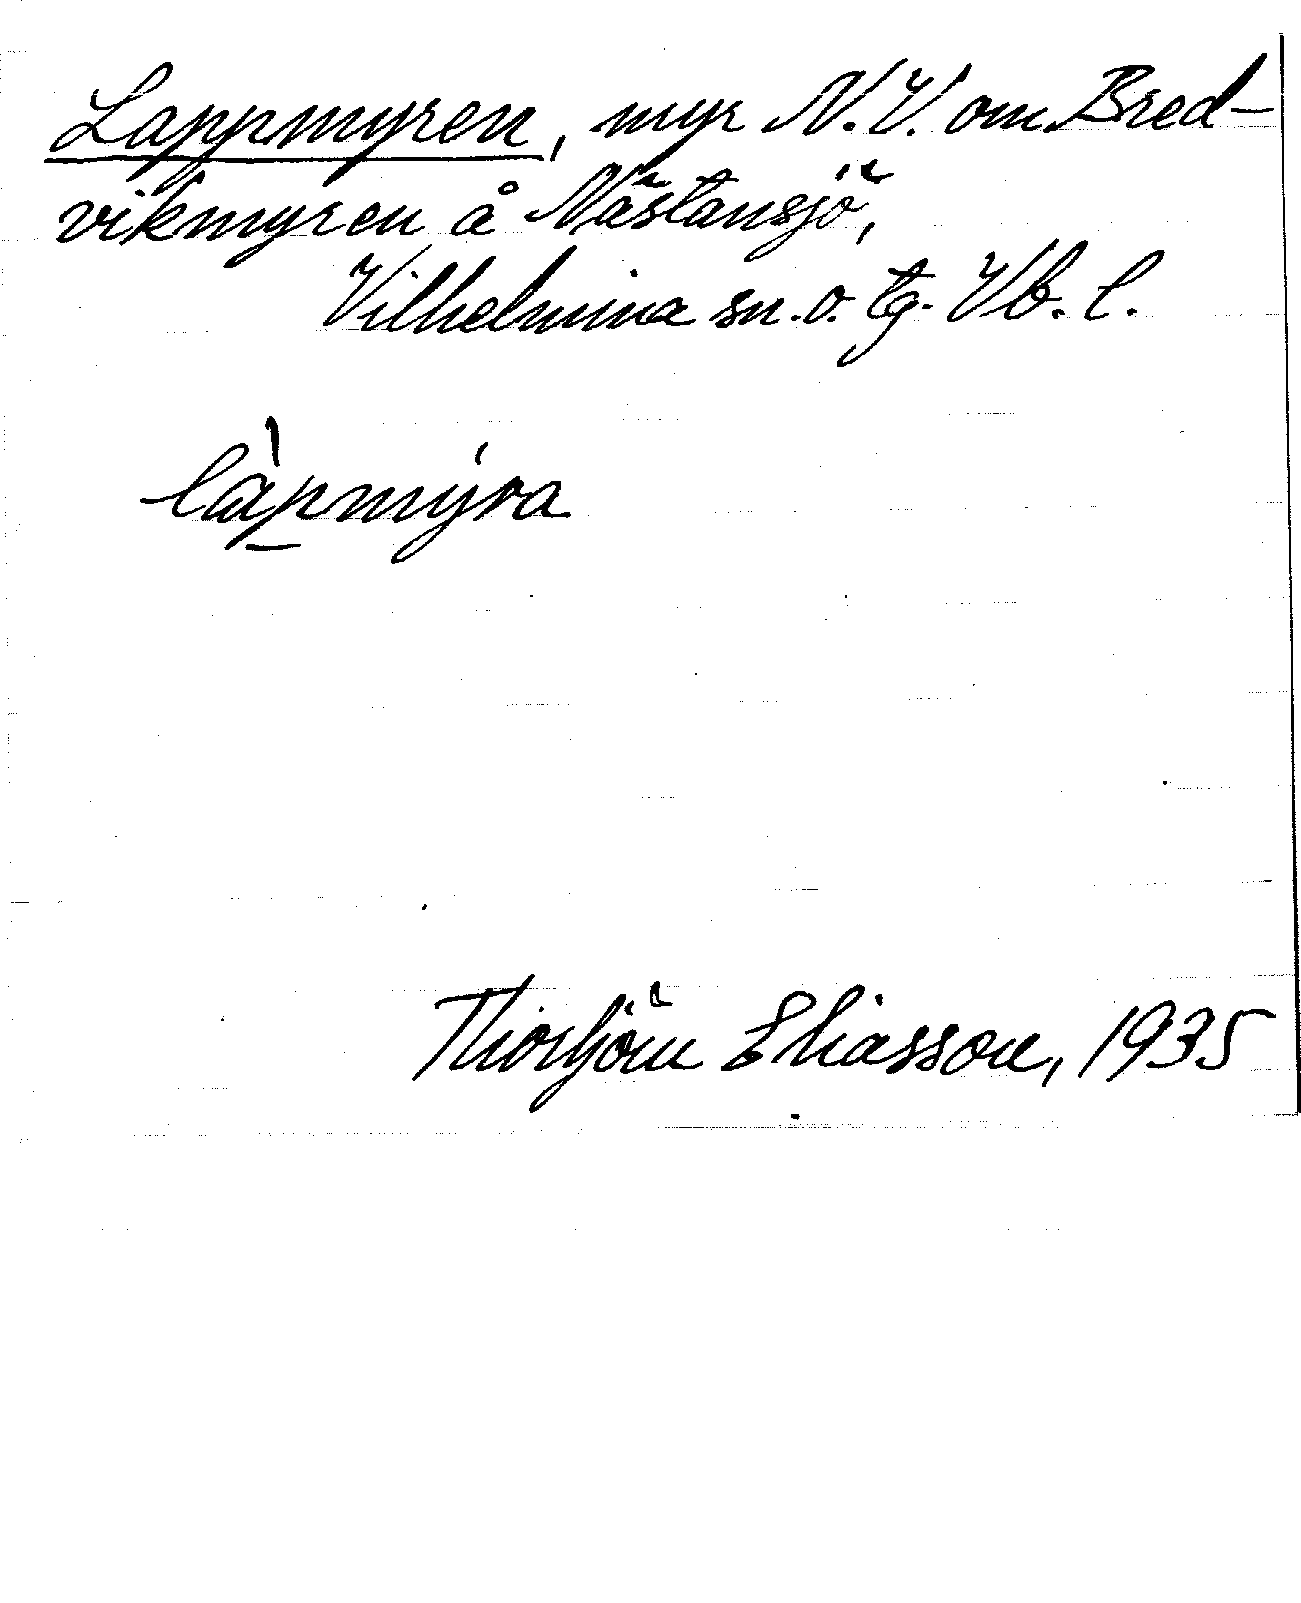 Lappmyren, myr N.V. om Bred-
vikmyren å Nästansjö,
Vilhelmina sn. o. tg. Vb. l.
làpmýra
Thorbjörn Eliasson, 1935